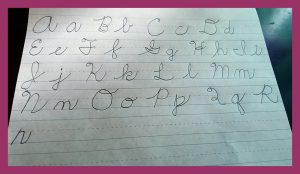 A a B b C c D d
E e F f G g H h I i
J j K k L l M m
N n O o P p Q q R
r